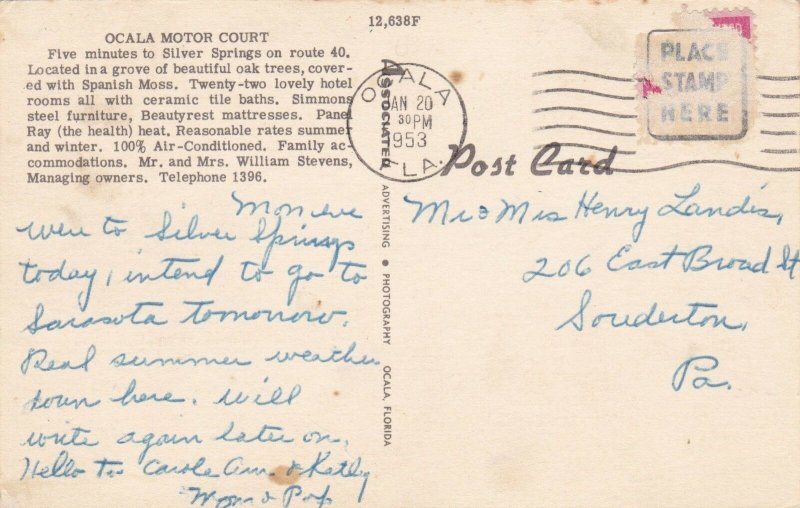 12,638F
OCALA MOTOR COURT
Five minutes to Silver Springs on route 40.
Located in a grove of beautiful oak trees, cover-
ed with Spanish Moss. Twenty-two lovely hotel
rooms all with ceramic tile baths. Simmons
steel furniture, Beautyrest mattresses. Panel
Ray (the health) heat. Reasonable rates summer
and winter. 100% Air-Conditioned. Family ac-
commodations. Mr. and Mrs. William Stevens,
Managing owners. Telephone 1396.
Mon eve
Were to Silver Springs
today, intend to go to
Sarasota tomorrow.
Real summer weather
down here. Will
write again later on.
Hello to Carole Ann & Kathy
Mom & Pop
ASSOCIATED ADVERTISING ● PHOTOGRAPHY OCALA, FLORIDA
OCALA
JAN 20
30 PM
1953
FLA.
PLACE
STAMP
HERE
Post Card
Mr & Mrs Henry Landis,
206 East Broad St
Souderton,
Pa.